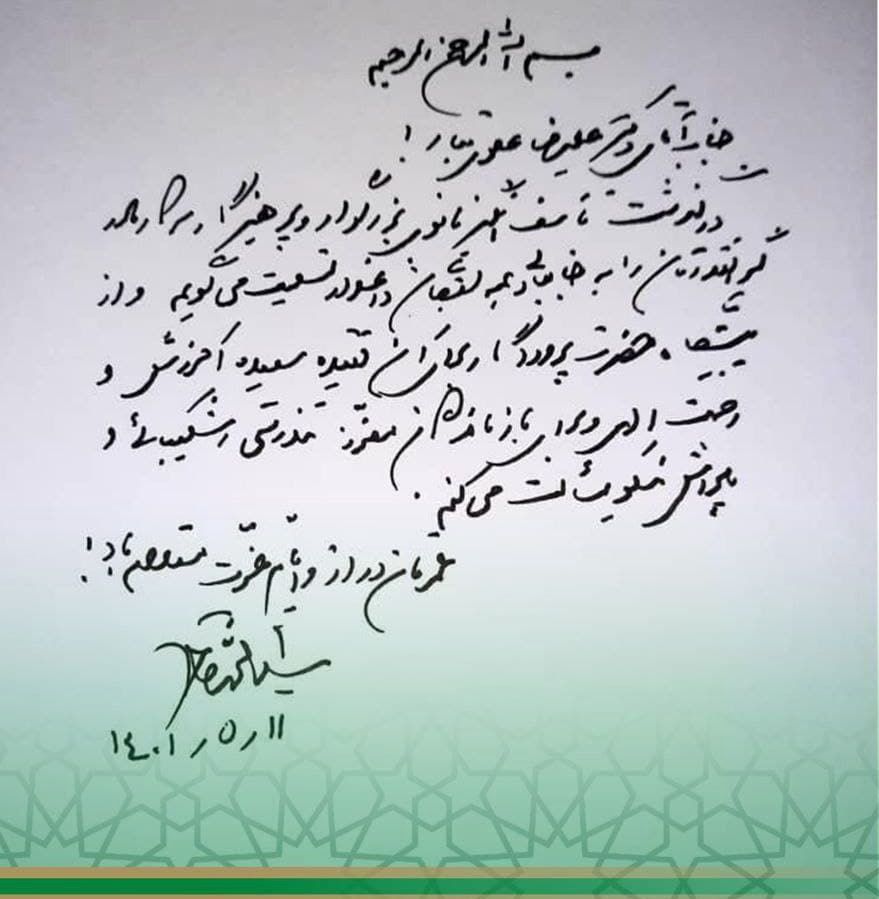 بسم الله الرحمن الرحیم
جناب آقای دکتر علیرضا عقوتی تبار!
درگذشت تأسف انگیز بانوی بزرگوار و پرهیزگار سرکار والده
گرانقدرتان را به جنابعالی و همه بستگان داغدار تسلیت می گویم و از
پیشگاه حضرت پروردگار برای آن فقیده سعیده آمرزش و
رحمت الهی و برای بازماندگان معزز تندرستی و شکیبائی و
پاداش نیکو مسألت می کنم.
عمرتان دراز و ایام عزت مستدام باد!
سید محمد خاتمی
۱۴۰۱/۵/۱۱